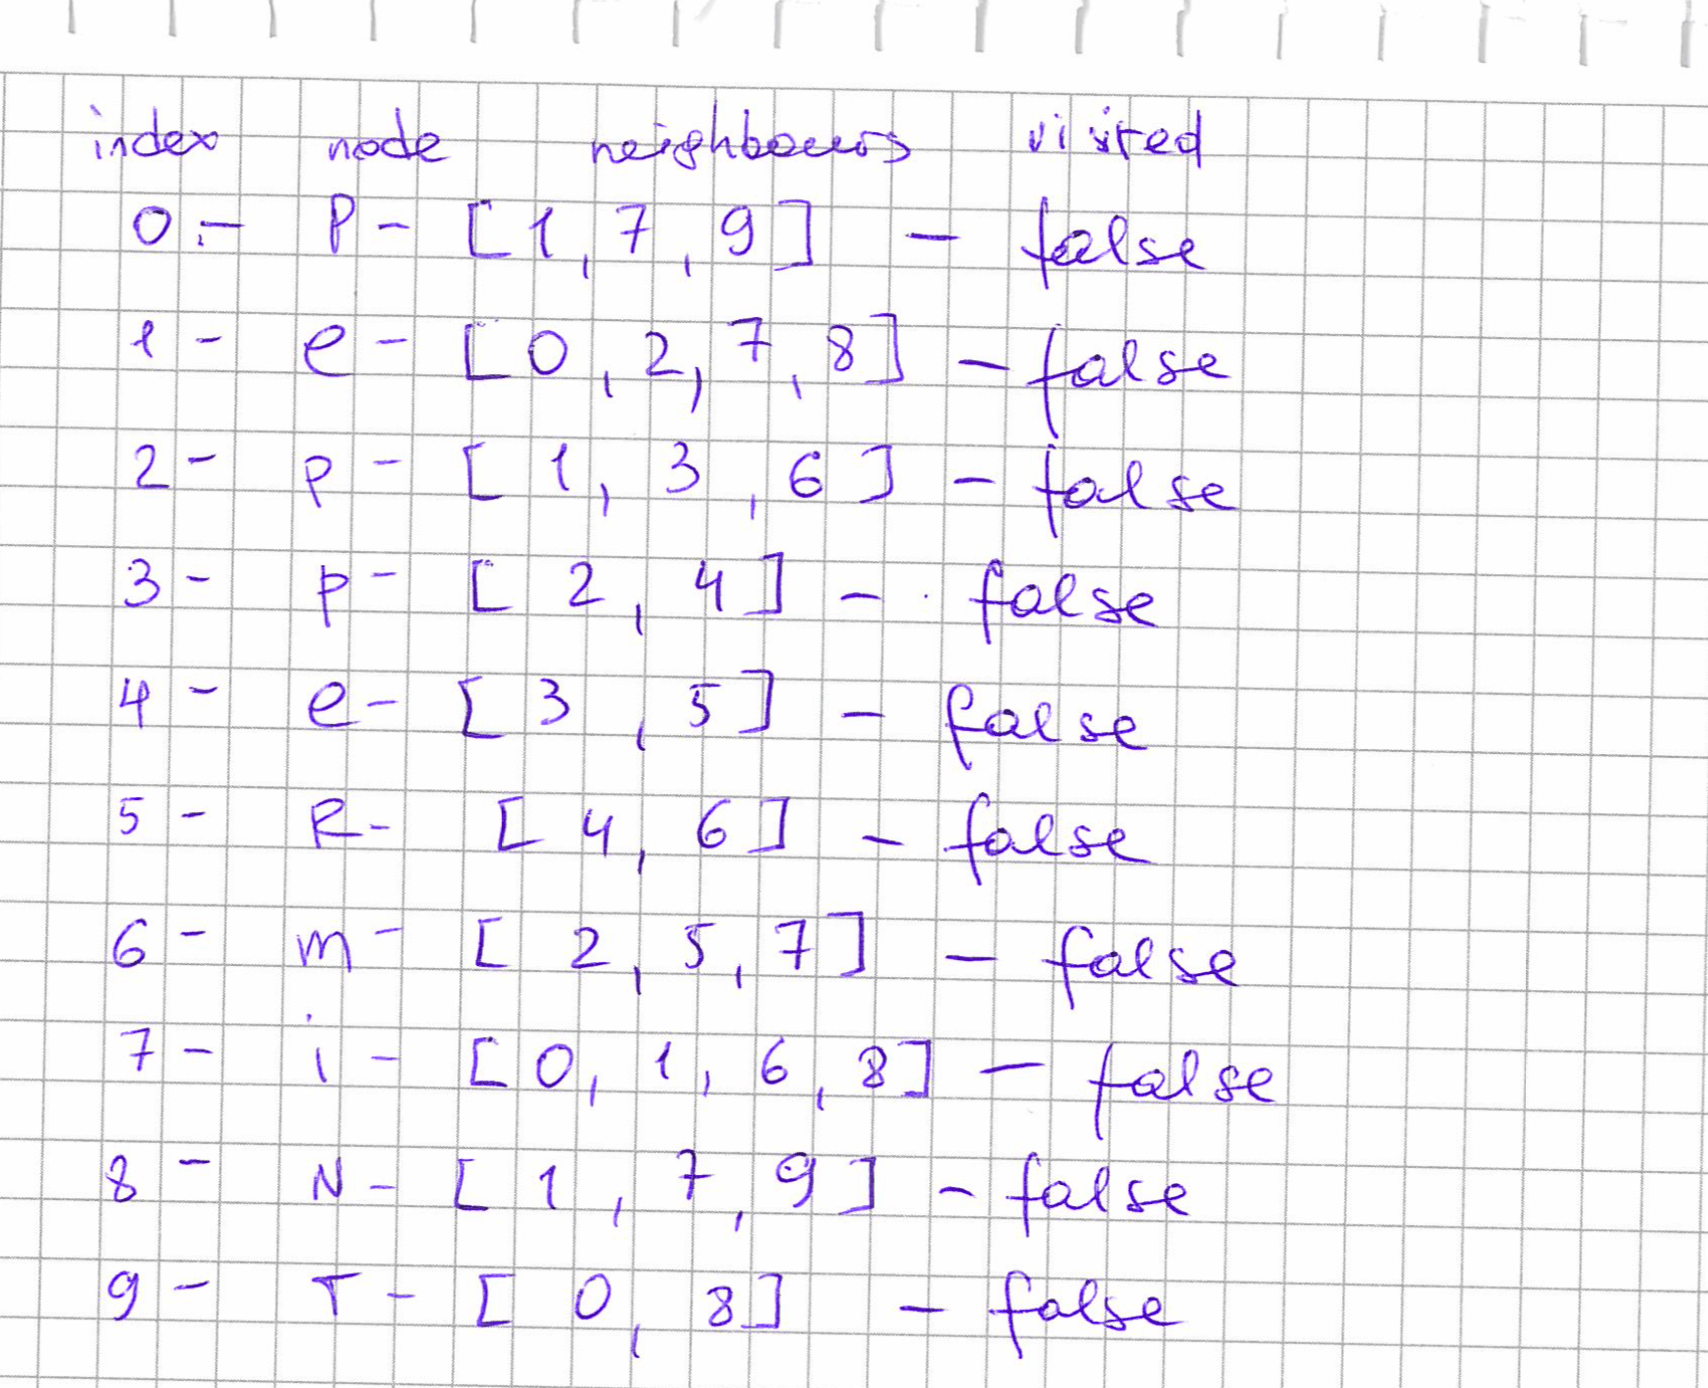 index node neighbours visited
0 - P - [1, 7, 9] - false
1 - e - [0, 2, 7, 8] - false
2 - p - [1, 3, 6] - false
3 - p - [2, 4] - false
4 - e - [3, 5] - false
5 - R - [4, 6] - false
6 - m - [2, 5, 7] - false
7 - i - [0, 1, 6, 8] - false
8 - N - [1, 7, 9] - false
9 - T - [0, 8] - false